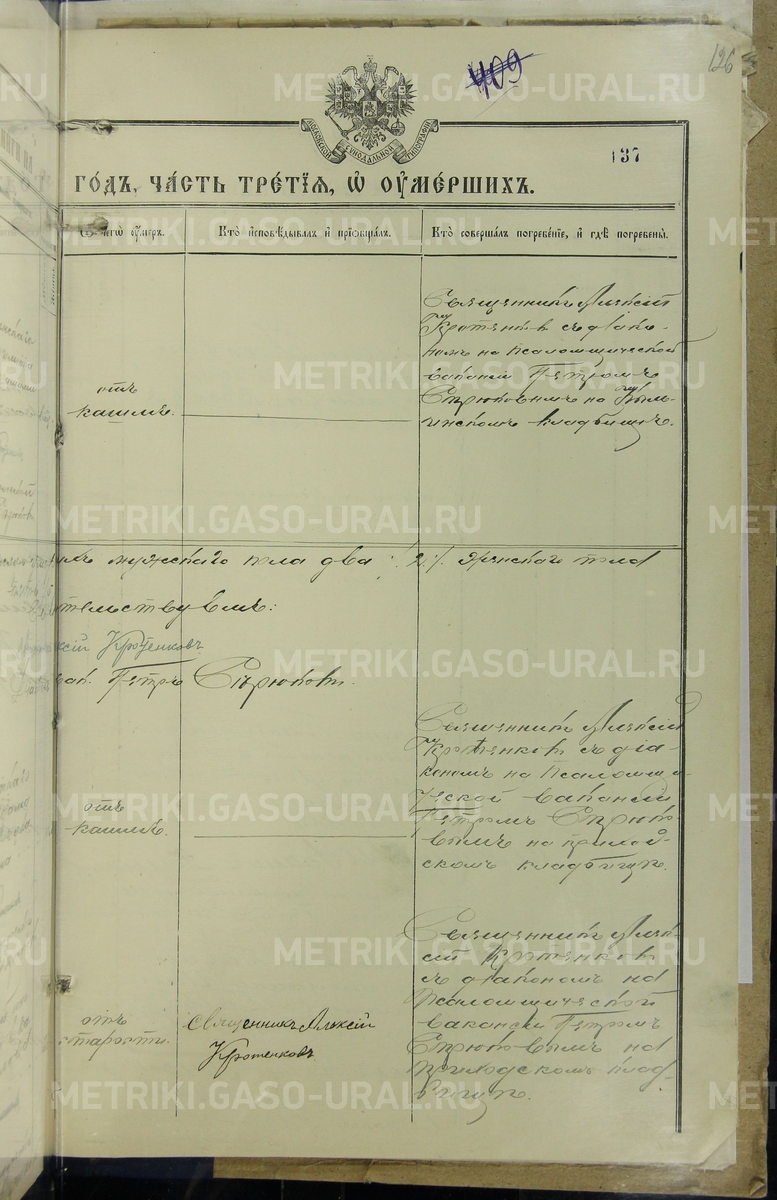 126
409
МОСКОВСКОЙ СѴНОДАЛЬНОЙ ТИПОГРАФІИ
137
ГО́ДЪ, ЧА́СТЬ ТРЕ́ТІѦ, Ѡ҆ ОУ҆МЕ́РШИХЪ.
чегѡ̀ оу҆́меръ.
Кто̀ и҆сповѣ́дывалъ и҆ прїѡбща́лъ.
Кто̀ соверша́лъ погребе́нїе, и҆ гдѣ̀ погребены̀.
отъ
кашля.
Священникъ Алексій
Кротенковъ съ діако-
номъ на псаломщической
вакансіи Петромъ
Сѣрюковымъ на
кладбищѣ.
мужскаго пола два 2. женскаго пола
тельствуемъ:
ксій Кротенковъ
вак. Петръ Сѣрюковъ.
отъ
кашля.
Священникъ Алексій
Кротенковъ съ діа-
кономъ на псаломщи-
ческой вакансіи
Петромъ Сѣрюко-
вымъ на
скомъ кладбищѣ.
отъ
старости.
Священникъ Алексій
Кротенковъ
Священникъ Алек-
сій Кротенковъ
съ діакономъ на
псаломщической
вакансіи Петромъ
Сѣрюковымъ на
приходскомъ клад-
бищѣ.
METRIKI.GASO-URAL.RU